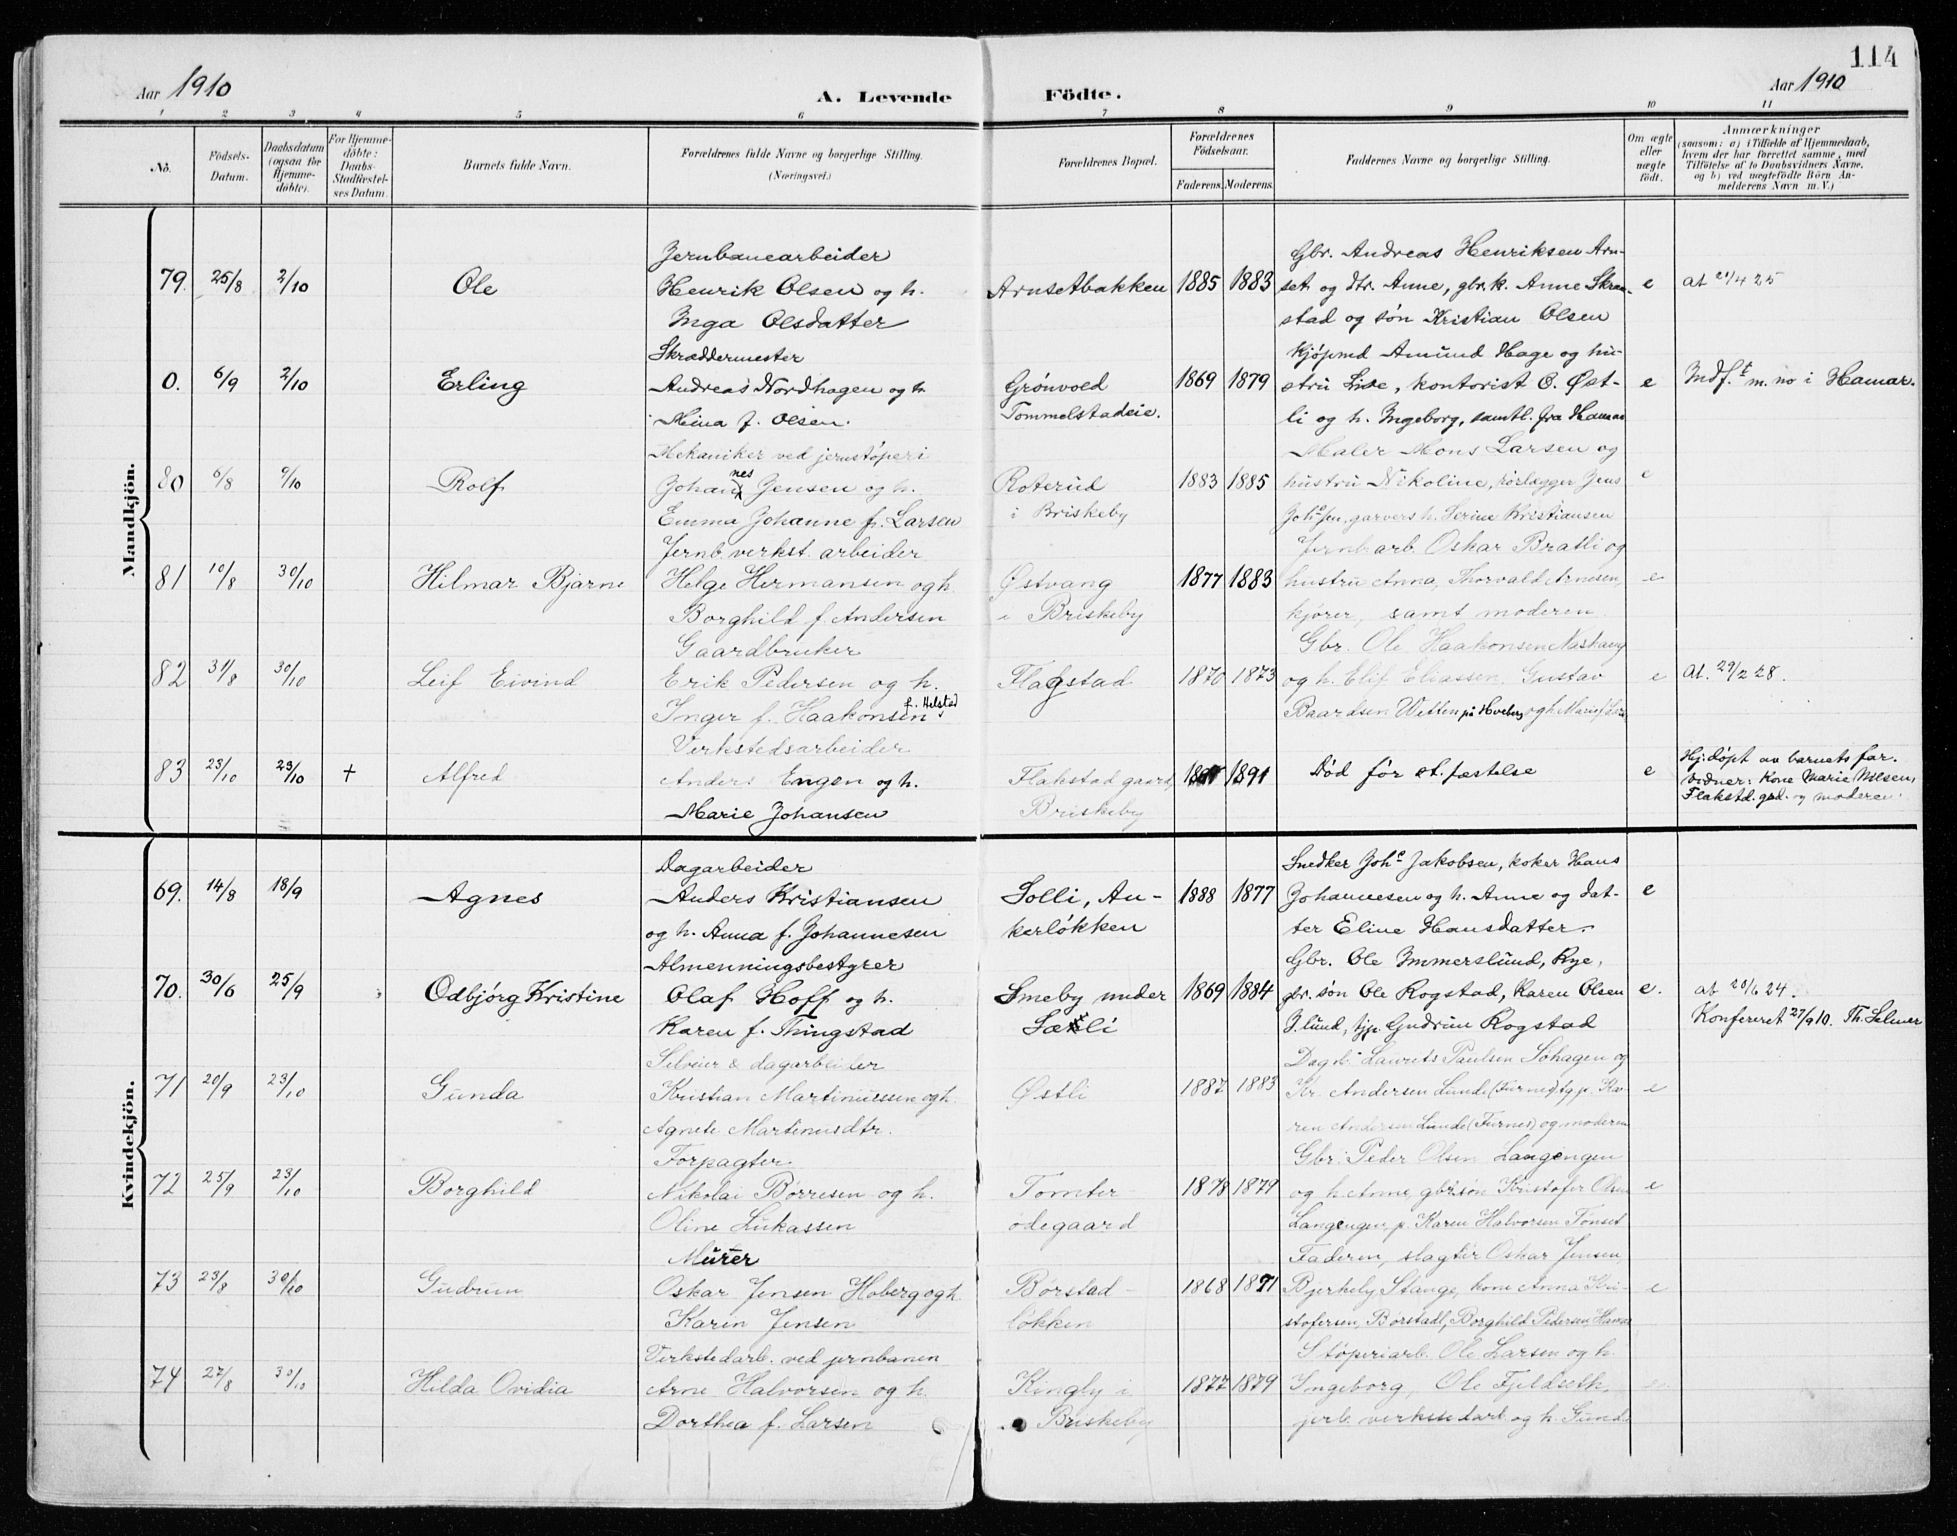 114
Aar 1910
A. Levende Födte.
Aar 1910
1 2 3 4 5 6 7 8 9 10 11
No.
Födsels-
Datum.
Daabsdatum
(ogsaa for
Hjemme-
døbte).
For Hjemme-
døbte:
Daabs-
Stadfæstel-
ses Datum.
Barnets fulde Navn.
Forældrenes fulde Navne og borgerlige Stilling.
(Næringsvei.)
Forældrenes Bopæl.
Forældrenes
Födselsaar.
Faderens. Moderens.
Faddernes Navne og borgerlige Stilling.
Om ægte
eller
uægte
født.
Anmærkninger
(saasom: a) i Tilfælde af Hjemmedaab,
hvem der har forrettet samme, med
Tilföielse af to Daabsvidners Navne,
og b) ved uægtefödte Börn An-
melderens Navn m. V.)
Mandkjön.
Jernbanearbeider
Gbr. Andreas Henriksen Arn-
79. 25/8 2/10 Ole Henrik Olsen og h. Arnsetbakken 1885 1883 set og dtr. Anne, gbr.k. Anne Skram- e at 21/4 25
Inga Olsdatter
stad og søn Kristian Olsen
Skræddermester
Kjøpmd Amund Hage og hu-
0. 6/9 2/10 Erling Andreas Nordhagen og h. Grönvold 1869 1879 stru Lise, kontorist O. Øst- e Indf.t m. no i Hamar.
Mina f. Olsen. Tommelstadeie.
li og h. Ingeborg, samtl. fra Hamar
Mekaniker ved jernstøperi
Maler Mons Larsen og
80 6/8 9/10 Rolf Johannes Jensen og h. Roterud 1883 1885 hustru Nikoline, rörlægger Jens e
Emma Johanne f. Larsen i Briskeby
Joh.sen, garvers h. Serine Kristiansen
Jernb. verkst. arbeider
Jernb. arb. Oskar Bratli og
81 10/8 30/10 Hilmar Bjarne Helge Hermansen og h. Østvang 1877 1883 hustru Anna, Thorvald Arnesen, e
Borghild f. Andersen i Briskeby
kjører, samt moderen
Gaardbruker
Gbr. Ole Haakonsen Nashaug
82 31/8 30/10 Leif Eivind Erik Pedersen og h. Flagstad 1870 1873 og h. Elif Eliassen, Gustav e At. 29/2 28.
Inger f. Haakonsen f. Helstad
Baardsen Wetten på Hveberg og h. Marie
Verkstedsarbeider
83 23/10 23/10 + Alfred Anders Engen og h. Flakstad gaard, 1891 Död för st.fæstelse e Hj.døpt av barnets far.
Marie Johansen Briskeby
Vidner: Kone Marie Nilsen,
Flakstd. grd. og moderen.
Kvindekjön.
Dagarbeider
Snedker Joh.s Jakobsen, koker Hans
69. 14/8 18/9 Agnes Anders Kristiansen Solli, An- 1888 1877 Johannesen og h. Anne og dat- e
og h. Anna f. Johannesen kerløkken
ter Eline Hansdatter.
Almenningsbestyrer
Gbr. Ole Immerslund, Rye,
70. 30/6 25/9 Odbjørg Kristine Olaf Hoff og h. Smeby under 1869 1884 gbr. søn Ole Rogstad, Karen Olsen e. at 20/6 24.
Karen f. Thingstad Sæli
I.lund, tjp. Gudrun Rogstad
Konfereret 27/9 10. Th. Selmer
Selveier & dagarbeider
Dagarb. Laurits Paulsen Sohagen og
71 20/9 23/10 Gunda Kristian Martinussen og h. Østli 1887 1883 Kr. Andersen Lunde (Furnes) tg p. Ka- e
Agnete Martinusdtr.
ren Andersen Lunde (Furnes) og moderen
Forpagter.
Gbr. Peder Olsen Langengen
72 25/9 23/10 Borghild Nikolai Børresen og h. Tomter 1878 1874 og h. Anne, gbr.søn Kristofer Olsen e
Oline Lukassen ødegaard
Langengen, p. Karen Halvorsen Tønset
Murer
Faderen, slagter Oskar Jensen,
73 23/8 30/10 Gudrun Oskar Jensen Hoberg og h. Børstad- 1868 1871 Bjerkely Stange, kone Anna Kri- e
Karin Jensen løkken
stofersen, Børstadl, Borghild Pedersen, Hamar
Verkstedarb. ved jernbanen
Støperiarb. Ole Larsen og h.
74 27/8 30/10 Hilda Ovidia Arne Halvorsen og h. Kingly i 1877 1879 Ingeborg, Ole Fjeldseth, e
Dorthea f. Larsen Briskeby
jerb. verkstedarb. og h. Gund